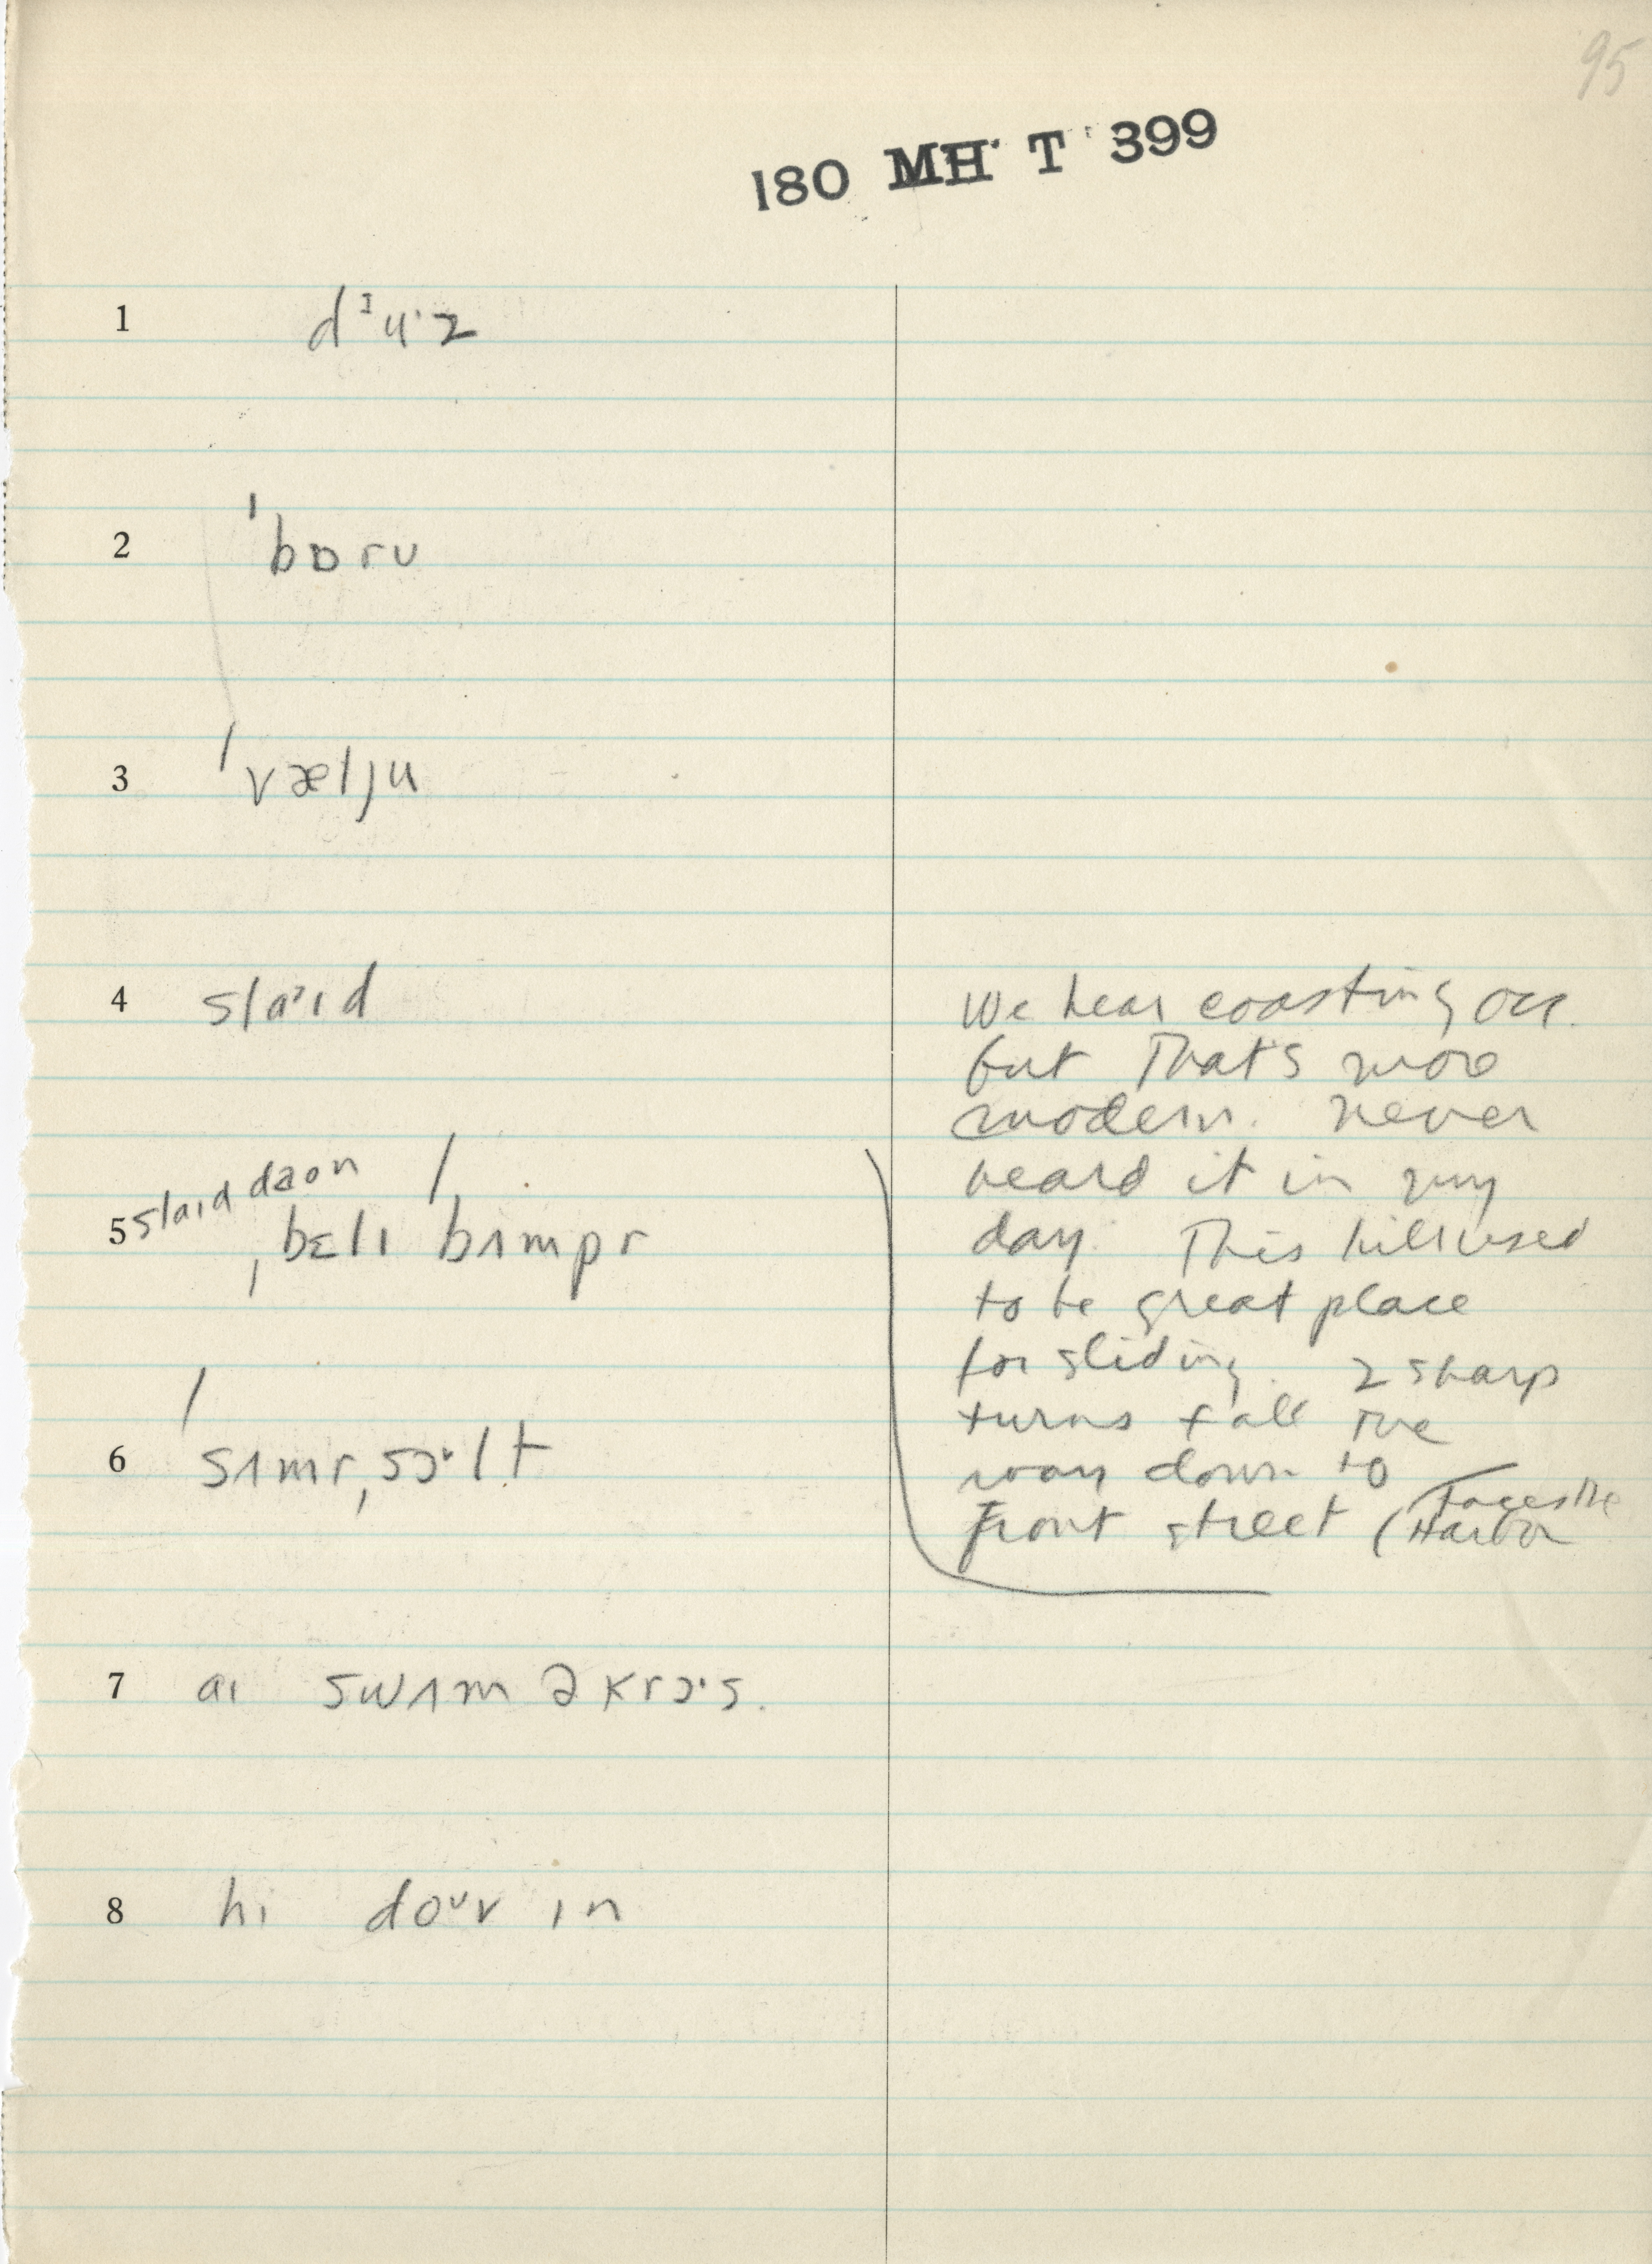 95
180 MH T 399
1 dᶦu·z
2 ˈbɒrʊ
3 ˈvæljʊ
4 slaˑɪd
We hear coasting occ.
but that's more
modern. never
heard it in my
day. This hill used
to be great place
for sliding. 2 sharp
turns + all the
way down to
Front street (Faces the
Harbor
5 slaɪd daon
ˌbɛlɪ ˈbʌmpr
6 ˈsʌmrˌsɔᵛlt
7 aɪ swʌm əkrɔ·s.
8 hi doᵘv ɪn